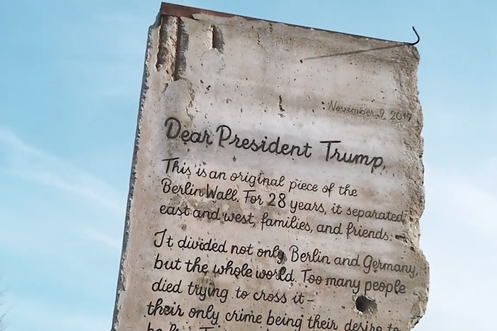 November 9, 2019
Dear President Trump,
This is an original piece of the
Berlin Wall. For 28 years, it separated
east and west, families, and friends.
It divided not only Berlin and Germany,
but the whole world. Too many people
died trying to cross it –
their only crime being their desire to